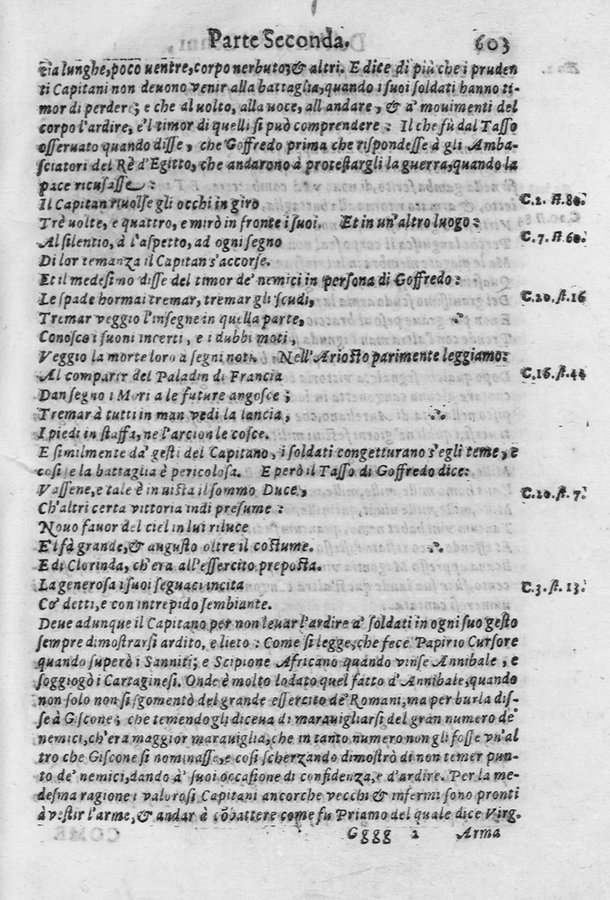 Parte Seconda. 603
cia lunghe, poco uentre, corpo nerbuto; & altri. E dice di più che i pruden
ti Capitani non deuono venir alla battaglia, quando i suoi soldati hanno ti-
mor di perdere; e che al uolto, alla uoce, all andare, & a' mouimenti del
corpo l'ardire, e'l timor di quelli si può comprendere: Il che fù dal Tasso
osseruato quando disse, che Goffredo prima che rispondesse à gli Amba-
sciatori del Rè d'Egitto, che andarono à protestargli la guerra, quando la
pace ricusasse:
Il Capitan riuolse gli occhi in giro C.2. st.80.
Trè uolte, e quattro, e mirò in fronte i suoi. Et in un'altro luogo:
Al silentio, à l'aspetto, ad ogni segno C.7. st.60.
Di lor temanza il Capitan s'accorse.
Et il medesimo disse del timor de' nemici in persona di Goffredo:
Le spade hormai tremar, tremar gli scudi, C.20. st.16
Tremar veggio l'insegne in quella parte,
Conosco i suoni incerti, e i dubbi moti,
Veggio la morte loro a segni noti. Nell'Ariosto parimente leggiamo:
Al comparir del Paladin di Francia C.16. st.44
Dan segno i Mori a le future angosce;
Tremar à tutti in man vedi la lancia,
I piedi in staffa, ne l'arcion le cosce.
E similmente da' gesti del Capitano, i soldati congetturano s'egli teme, e
cosi se la battaglia è pericolosa. E però il Tasso di Goffredo dice:
Vassene, e tale è in uista il sommo Duce, C.20. st.7.
Ch'altri certa vittoria indi presume:
Nouo fauor del ciel in lui riluce
E'l fà grande, & augusto oltre il costume.
E di Clorinda, ch'era all'essercito preposta.
La generosa i suoi seguaci incita C.3. st.13.
Cō detti, e con intrepido sembiante.
Deue adunque il Capitano per non leuar l'ardire a' soldati in ogni suo gesto
sempre dimostrarsi ardito, e lieto: Come si legge, che fece Papirio Cursore
quando superò i Sanniti; e Scipione Africano quando vinse Annibale, e
soggiogò i Cartaginesi. Onde è molto lodato quel fatto d'Annibale, quando
non solo non si sgomentò del grande essercito de' Romani, ma per burla dis-
se à Giscone; che temendogli diceua di marauigliarsi del gran numero de'
nemici, ch'era maggior marauiglia, che in tanto numero non gli fosse vn'al
tro che Giscone si nominasse, e così scherzando dimostrò di non temer pun-
to de' nemici, dando à suoi occasione di confidenza, e d'ardire. Per la me-
desma ragione i valorosi Capitani ancorche vecchi & infermi sono pronti
à vestir l'arme, & andar à cōbattere come fu Priamo del quale dice Virg.
Gggg 2 Arma